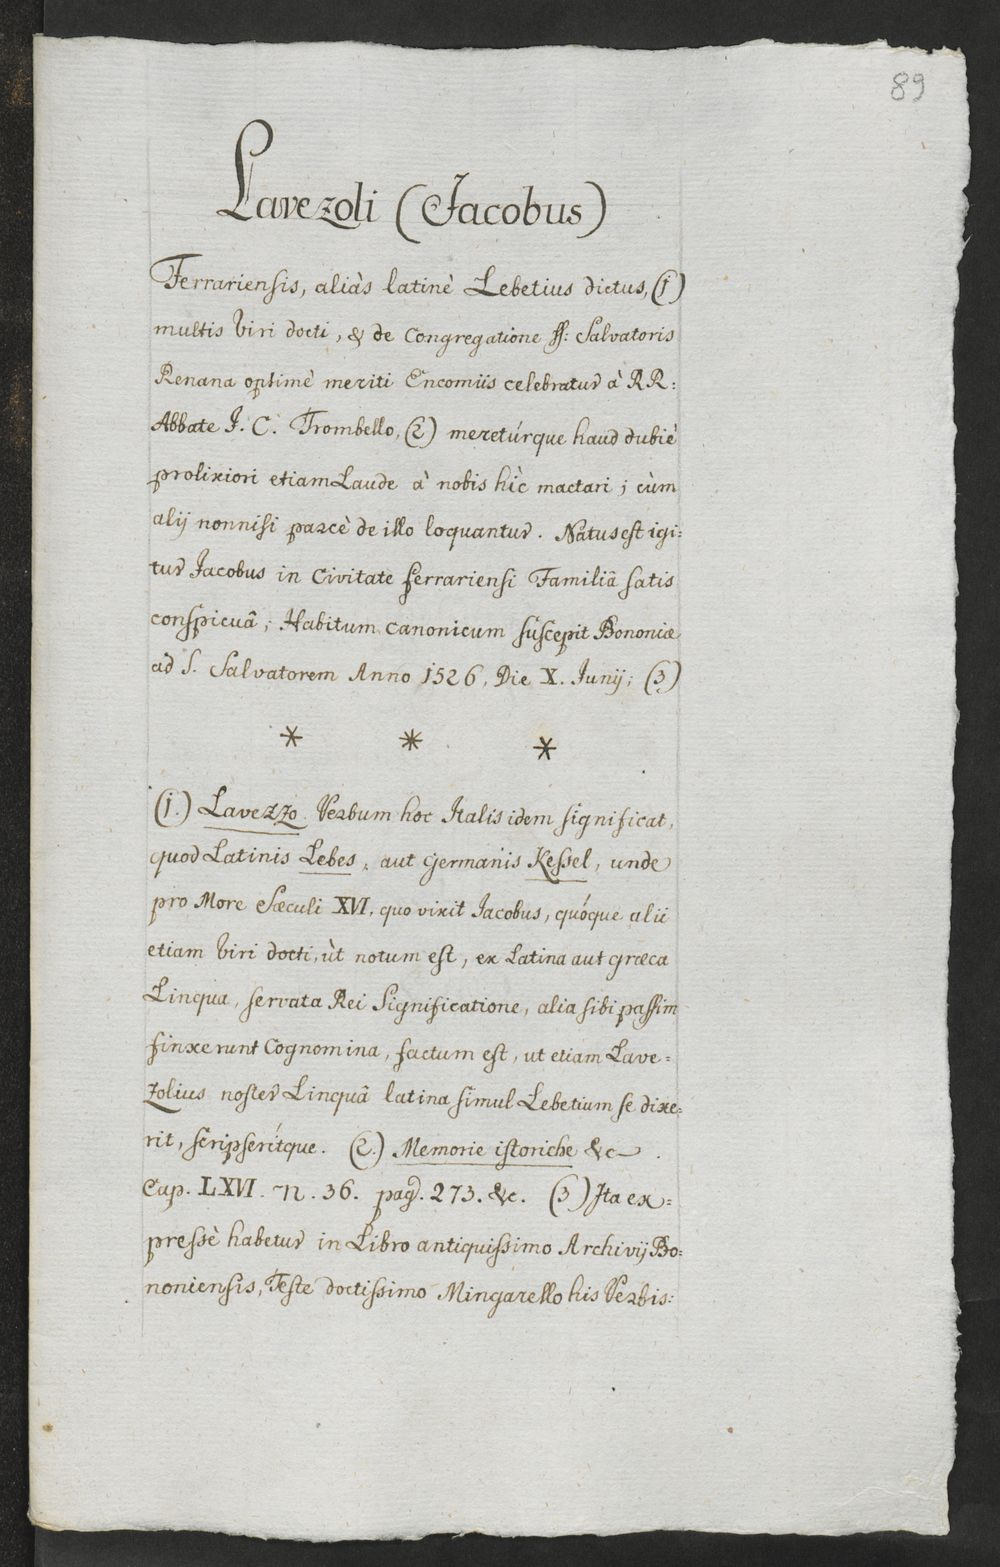 89
Lavezoli (Jacobus)
Ferrariensis, aliàs latinè Lebetius dictus, (1)
multis Viri docti, & de Congregatione SS: Salvatoris
Renana optimè meriti Encomiis celebratur à RR:
Abbate J. C. Trombello, (2) meretúrque haud dubiè
prolixiori etiam Laude à nobis hìc mactari; cùm
alij nonnisi parcè de illo loquantur. Natus est igi:
tur Jacobus in Civitate Ferrariensi Familiâ satis
conspicuâ; Habitum canonicum suscepit Bononiæ
ad S. Salvatorem Anno 1526, Die X. Junij; (3)
* * *
(1.) Lavezzo. Verbum hoc Italis idem significat,
quod Latinis Lebes, aut Germanis Kessel, unde
pro More Sæculi XVI, quo vixit Jacobus, quóque alii
etiam Viri docti, ùt notum est, ex Latina aut græca
Lingua, servata Rei Significatione, alia sibi passim
finxerunt Cognomina, factum est, ut etiam Lave:
zolius noster Linguâ latina simul Lebetium se dixe:
rit, scripserítque. (2.) Memorie istoriche &c.
Cap. LXVI. n. 36. pag. 273. &c. (3) Ita ex:
pressè habetur in Libro antiquissimo Archivij Bo:
noniensis, Teste doctissimo Mingarello his Verbis: